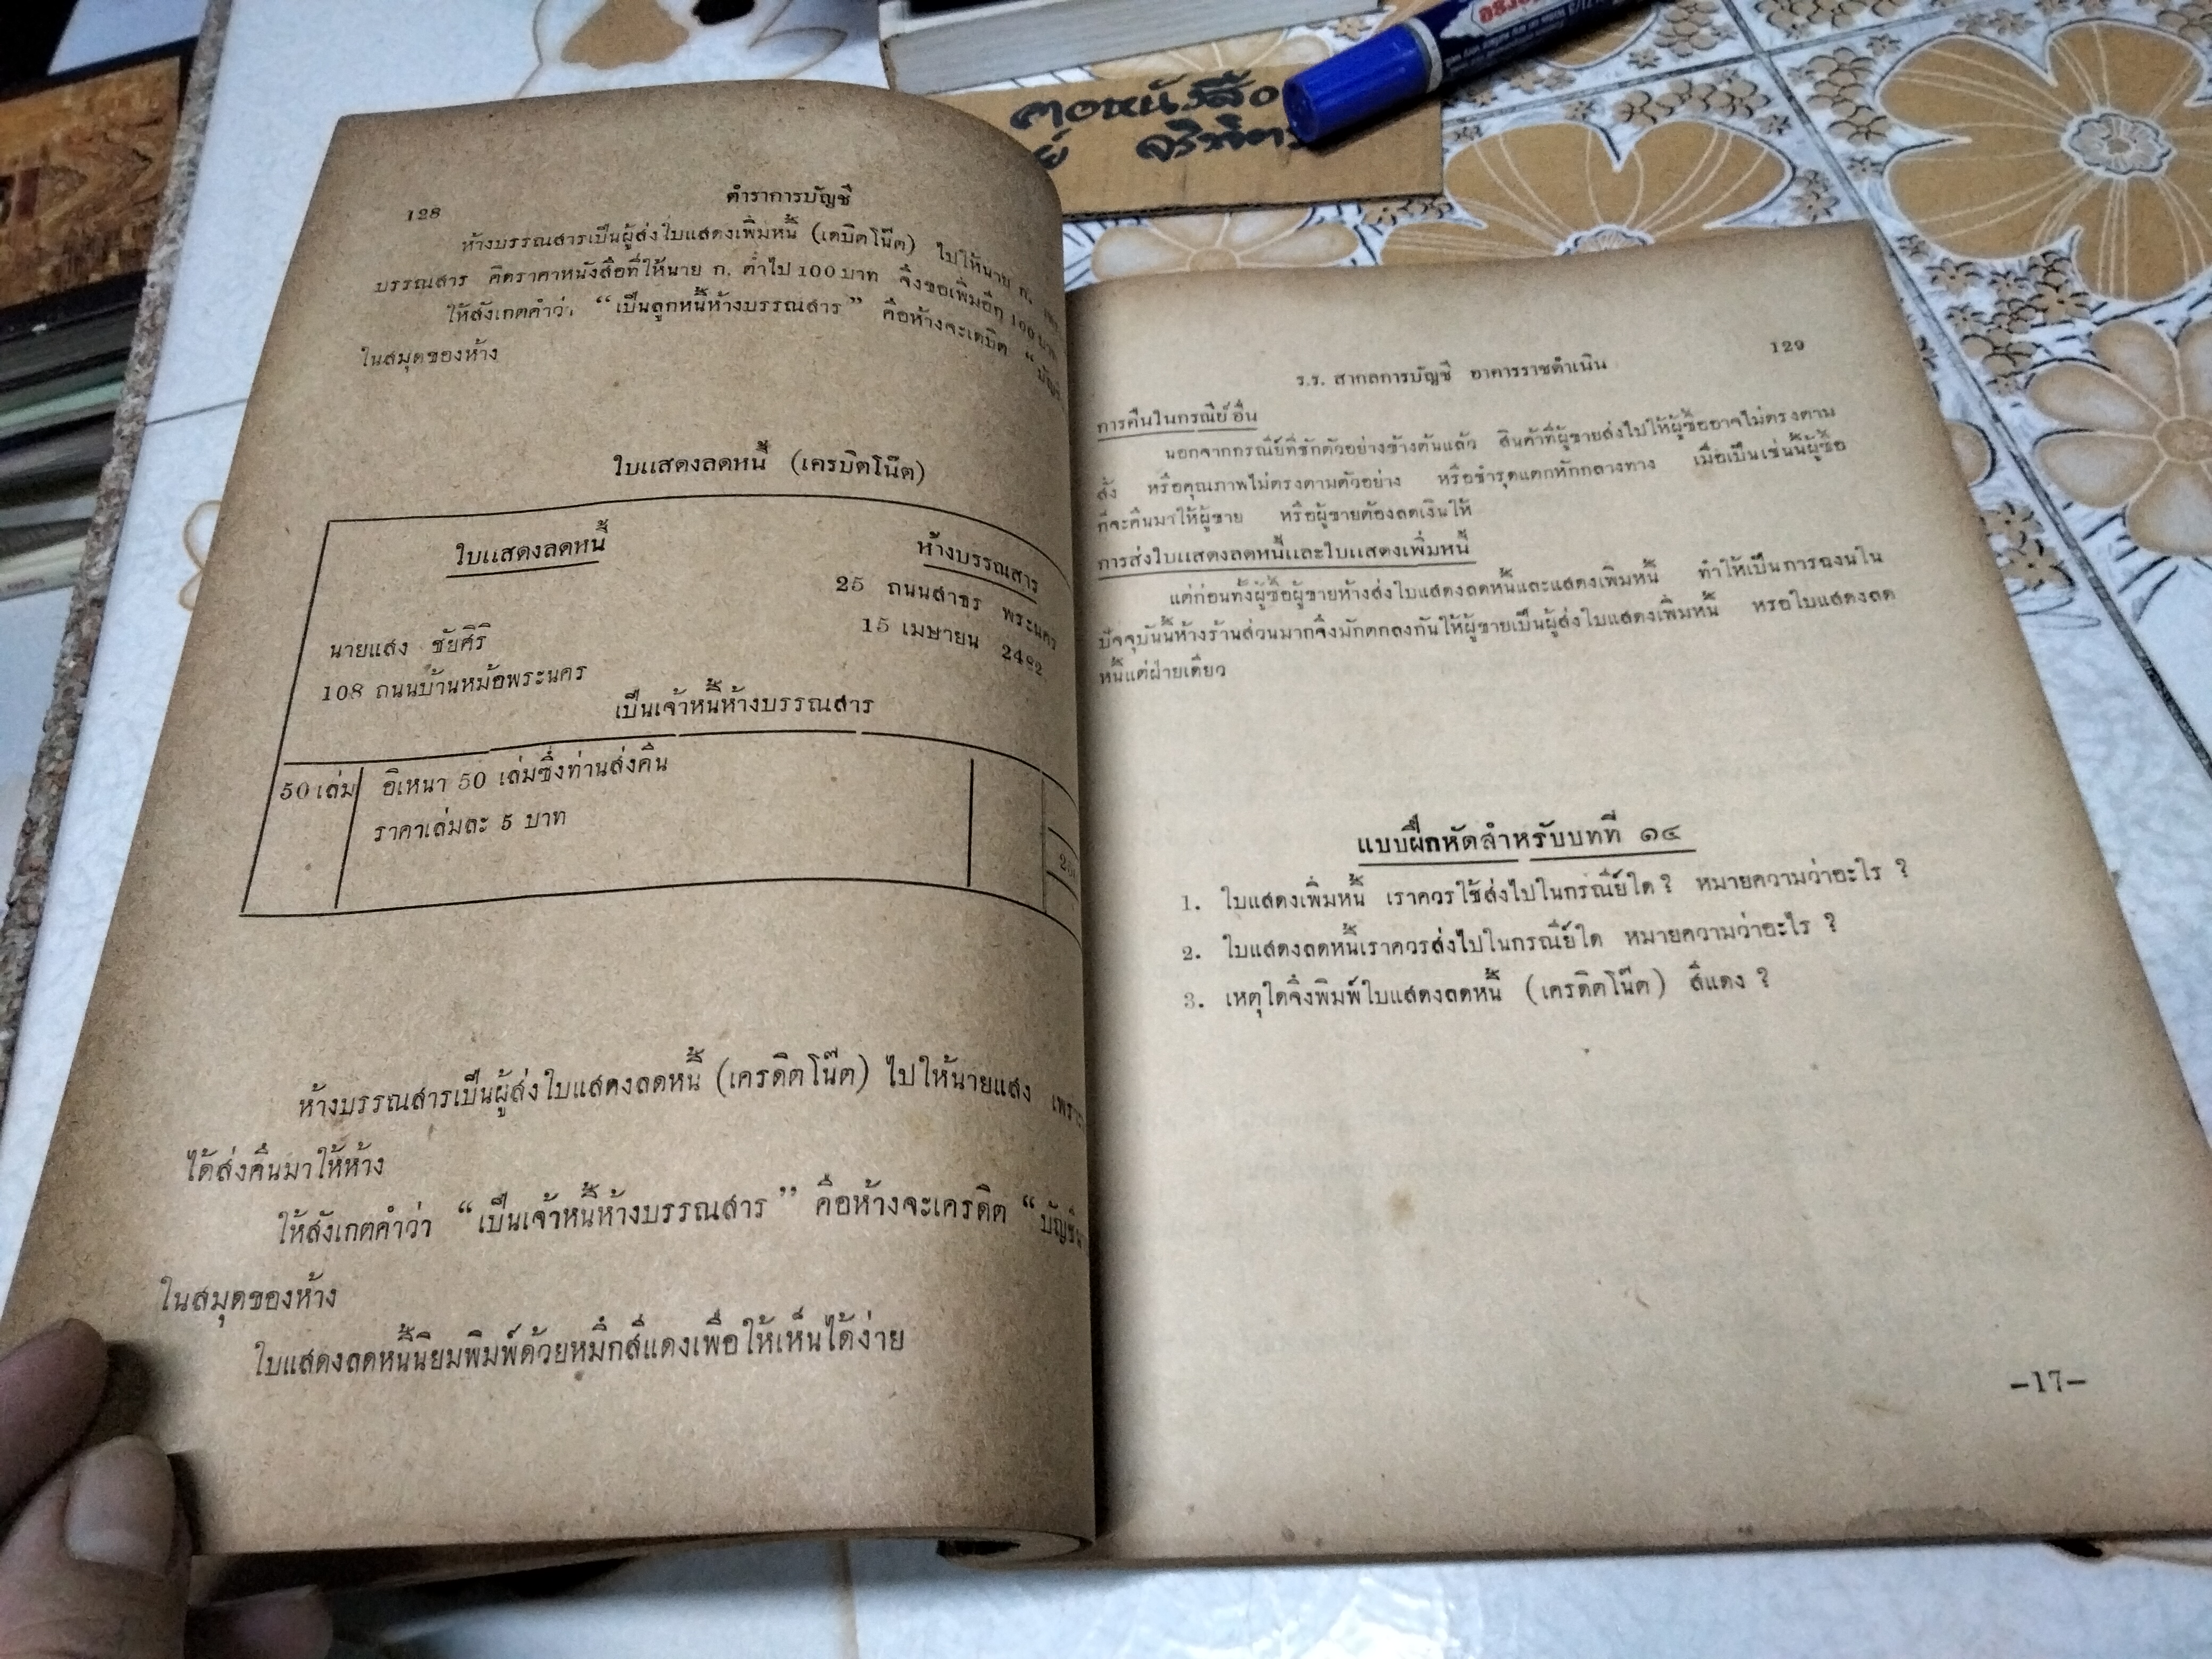 คอหนังสือ
จริงจิตร
128
ตำราการบัญชี
ห้างบรรณสารเป็นผู้ส่งใบแสดงเพิ่มหนี้ (เดบิตโน๊ต) ไปให้นาย ก.
บรรณสาร คิดราคาหนังสือที่ให้นาย ก. ต่ำไป 100 บาท จึงขอเพิ่มอีก 100 บาท
ให้สังเกตคำว่า “เป็นลูกหนี้ห้างบรรณสาร” คือห้างจะเดบิต “
ในสมุดของห้าง
ใบแสดงลดหนี้ (เครบิตโน๊ต)
ใบแสดงลดหนี้
ห้างบรรณสาร
25 ถนนสาธร พระนคร
15 เมษายน 2482
นายแสง ชัยศิริ
108 ถนนบ้านหม้อพระนคร
เป็นเจ้าหนี้ห้างบรรณสาร
50 เล่ม อิเหนา 50 เล่มซึ่งท่านส่งคืน
ราคาเล่มละ 5 บาท
ห้างบรรณสารเป็นผู้ส่งใบแสดงลดหนี้ (เครดิตโน๊ต) ไปให้นายแสง
ได้ส่งคืนมาให้ห้าง
ให้สังเกตคำว่า “เป็นเจ้าหนี้ห้างบรรณสาร” คือห้างจะเครดิต “
ในสมุดของห้าง
ใบแสดงลดหนี้นิยมพิมพ์ด้วยหมึกสีแดงเพื่อให้เห็นได้ง่าย
129
ร.ร. สากลการบัญชี อาคารราชดำเนิน
การคืนในกรณีย์อื่น
นอกจากกรณีย์ที่ชักตัวอย่างข้างต้นแล้ว สินค้าที่ผู้ขายส่งไปให้ผู้ซื้ออาจไม่ตรงตาม
สั่ง หรือคุณภาพไม่ตรงตามตัวอย่าง หรือชำรุดแตกหักกลางทาง เมื่อเป็นเช่นนี้ผู้ซื้อ
ก็จะคืนมาให้ผู้ขาย หรือผู้ขายต้องลดเงินให้
การส่งใบแสดงลดหนี้และใบแสดงเพิ่มหนี้
แต่ก่อนทั้งผู้ซื้อผู้ขายห้างส่งใบแสดงลดหนี้และแสดงเพิ่มหนี้ ทำให้เป็นการฉงนใน
ปัจจุบันนี้ห้างร้านส่วนมากจึงมักตกลงกันให้ผู้ขายเป็นผู้ส่งใบแสดงเพิ่มหนี้ หรือใบแสดงลด
หนี้แต่ฝ่ายเดียว
แบบฝึกหัดสำหรับบทที่ ๑๔
1. ใบแสดงเพิ่มหนี้ เราควรใช้ส่งไปในกรณีย์ใด ? หมายความว่าอะไร ?
2. ใบแสดงลดหนี้เราควรส่งไปในกรณีย์ใด หมายความว่าอะไร ?
3. เหตุใดจึงพิมพ์ใบแสดงลดหนี้ (เครดิตโน๊ต) สีแดง ?
–17–